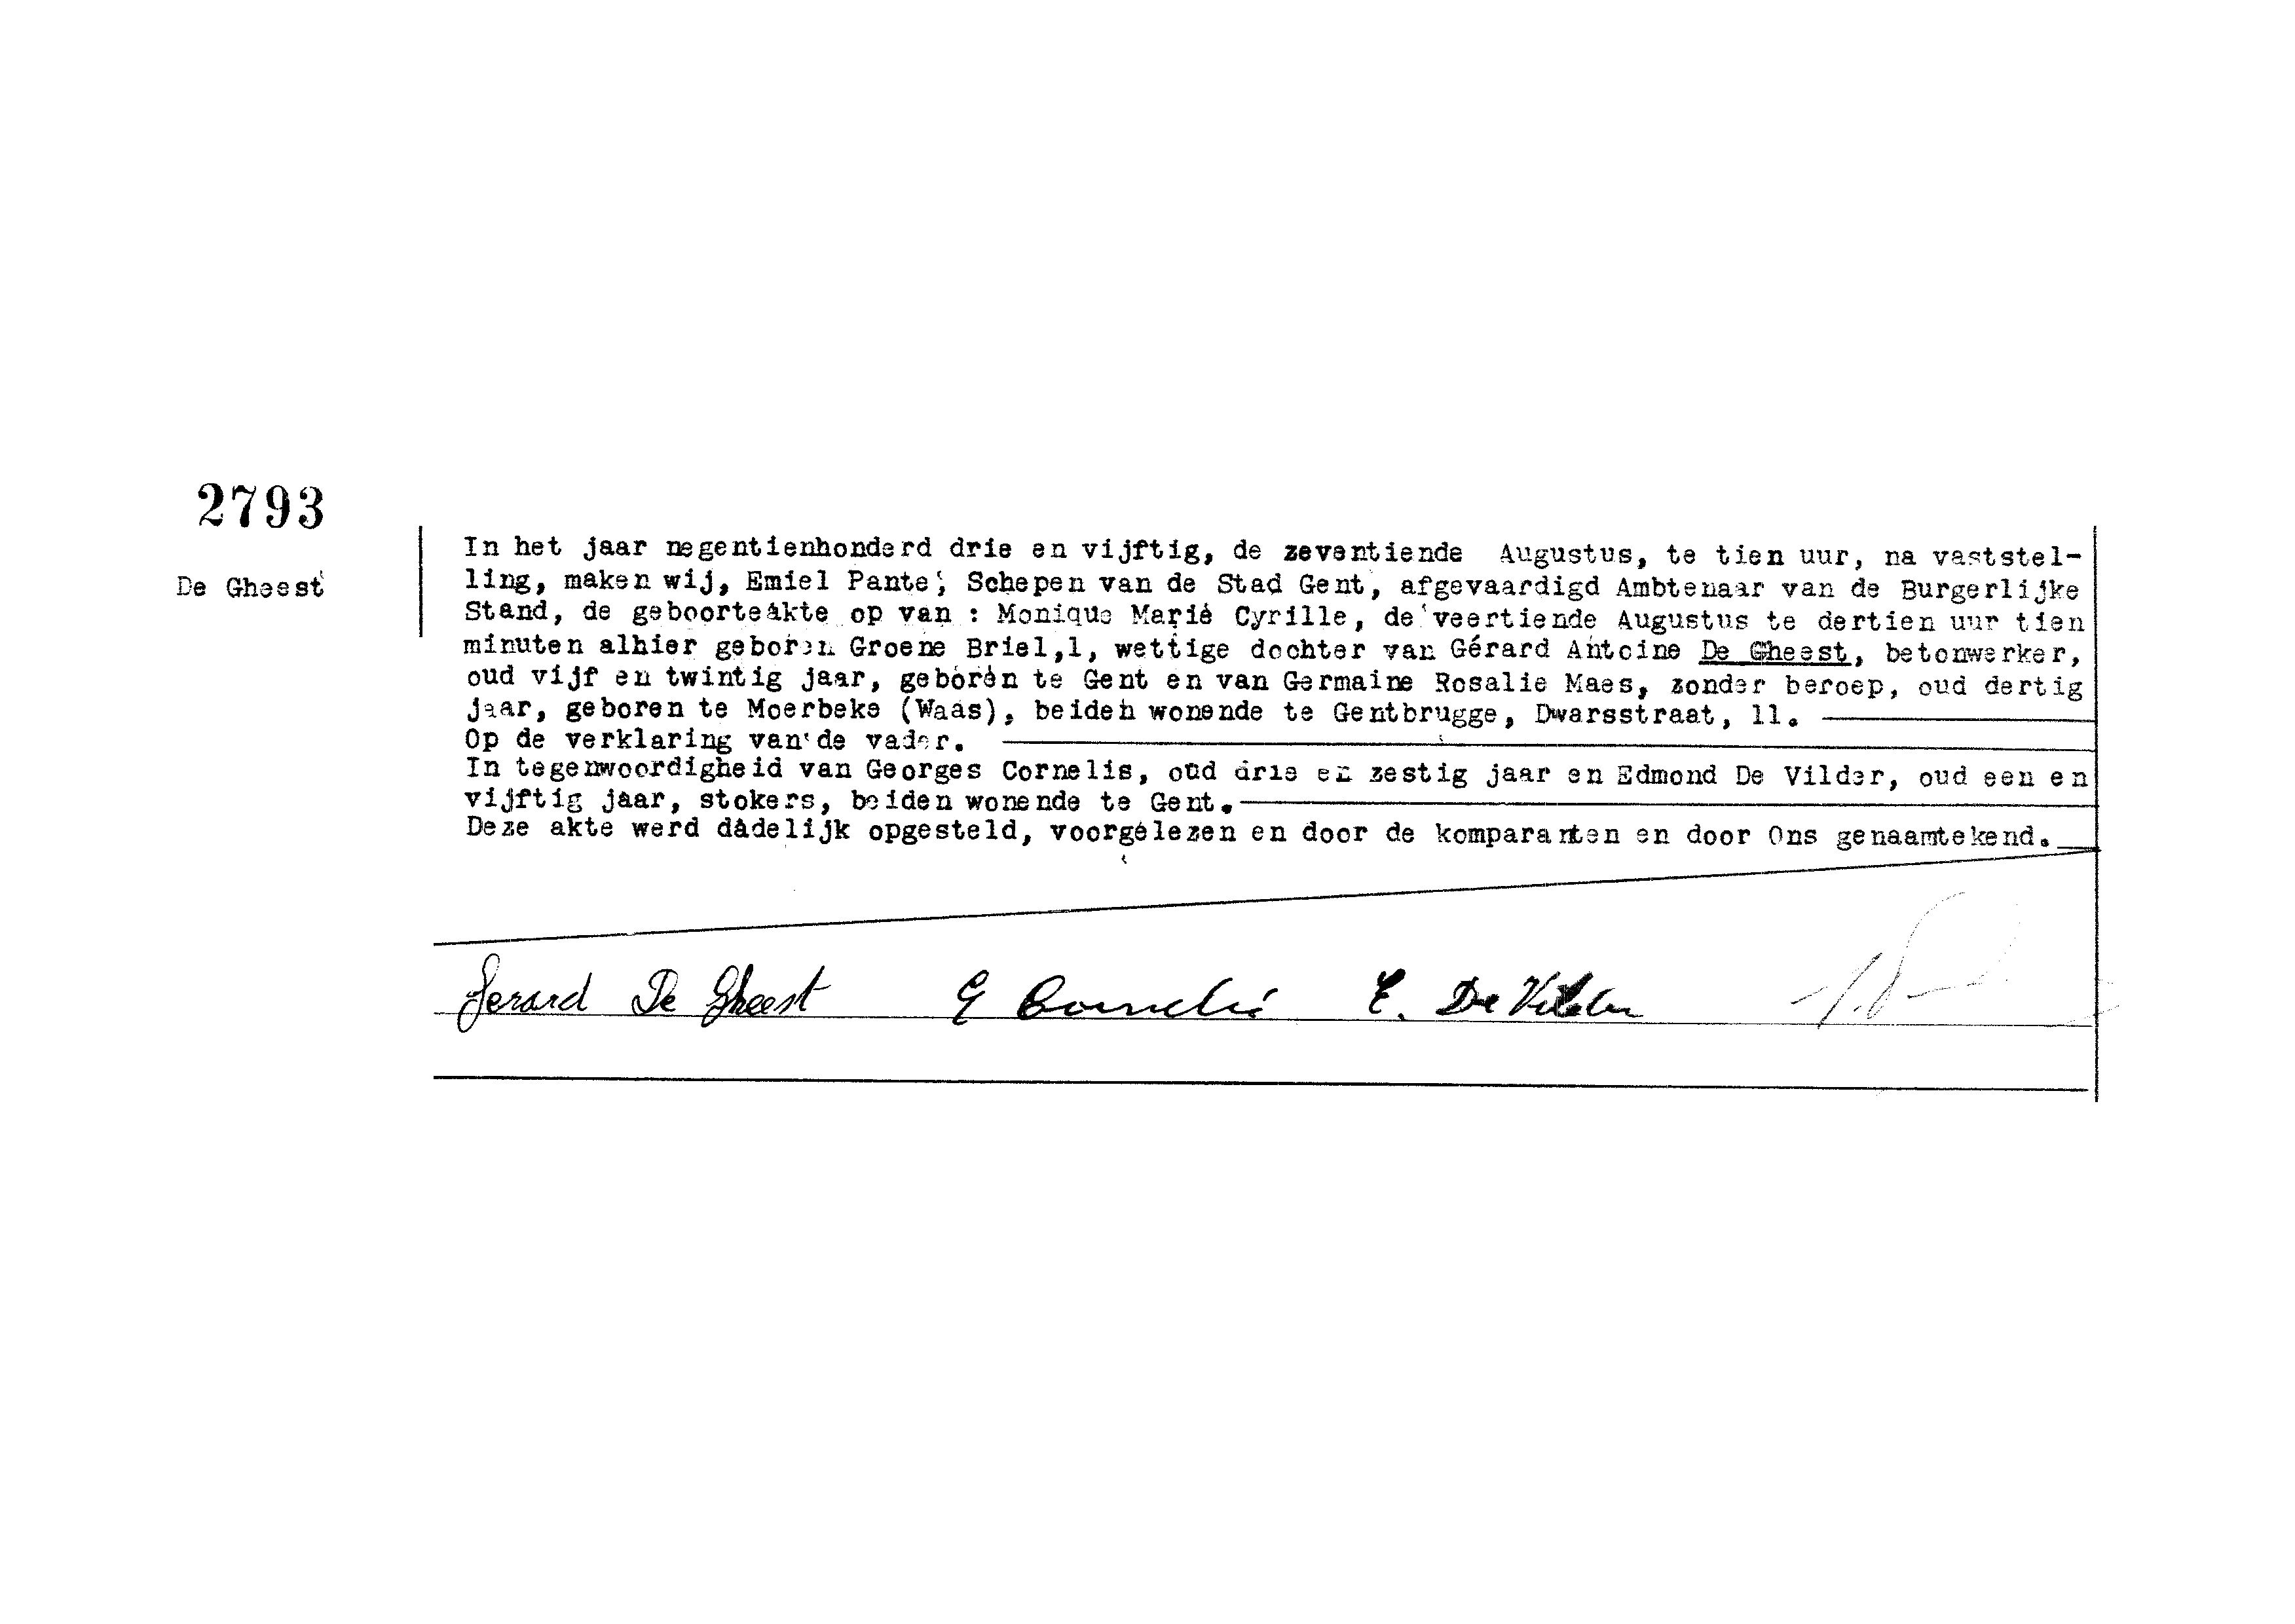 2793
De Gheest
In het jaar negentienhonderd drie en vijftig, de zeventiende Augustus, te tien uur, na vaststel-
ling, maken wij, Emiel Pante, Schepen van de Stad Gent, afgevaardigd Ambtenaar van de Burgerlijke
Stand, de geboorteakte op van : Monique Marie Cyrille, de veertiende Augustus te dertien uur tien
minuten alhier geboren Groene Briel,1, wettige dochter van Gérard Antoine De Gheest, betonwerker,
oud vijf en twintig jaar, geboren te Gent en van Germaine Rosalie Maes, zonder beroep, oud dertig
jaar, geboren te Moerbeke (Waas), beiden wonende te Gentbrugge, Dwarsstraat, 11.
Op de verklaring van de vader.
In tegenwoordigheid van Georges Cornelis, oud drie en zestig jaar en Edmond De Vilder, oud een en
vijftig jaar, stokers, beiden wonende te Gent.
Deze akte werd dadelijk opgesteld, voorgelezen en door de komparanten en door Ons genaamtekend.
Gerard De Gheest G Cornelis E. De Vilder